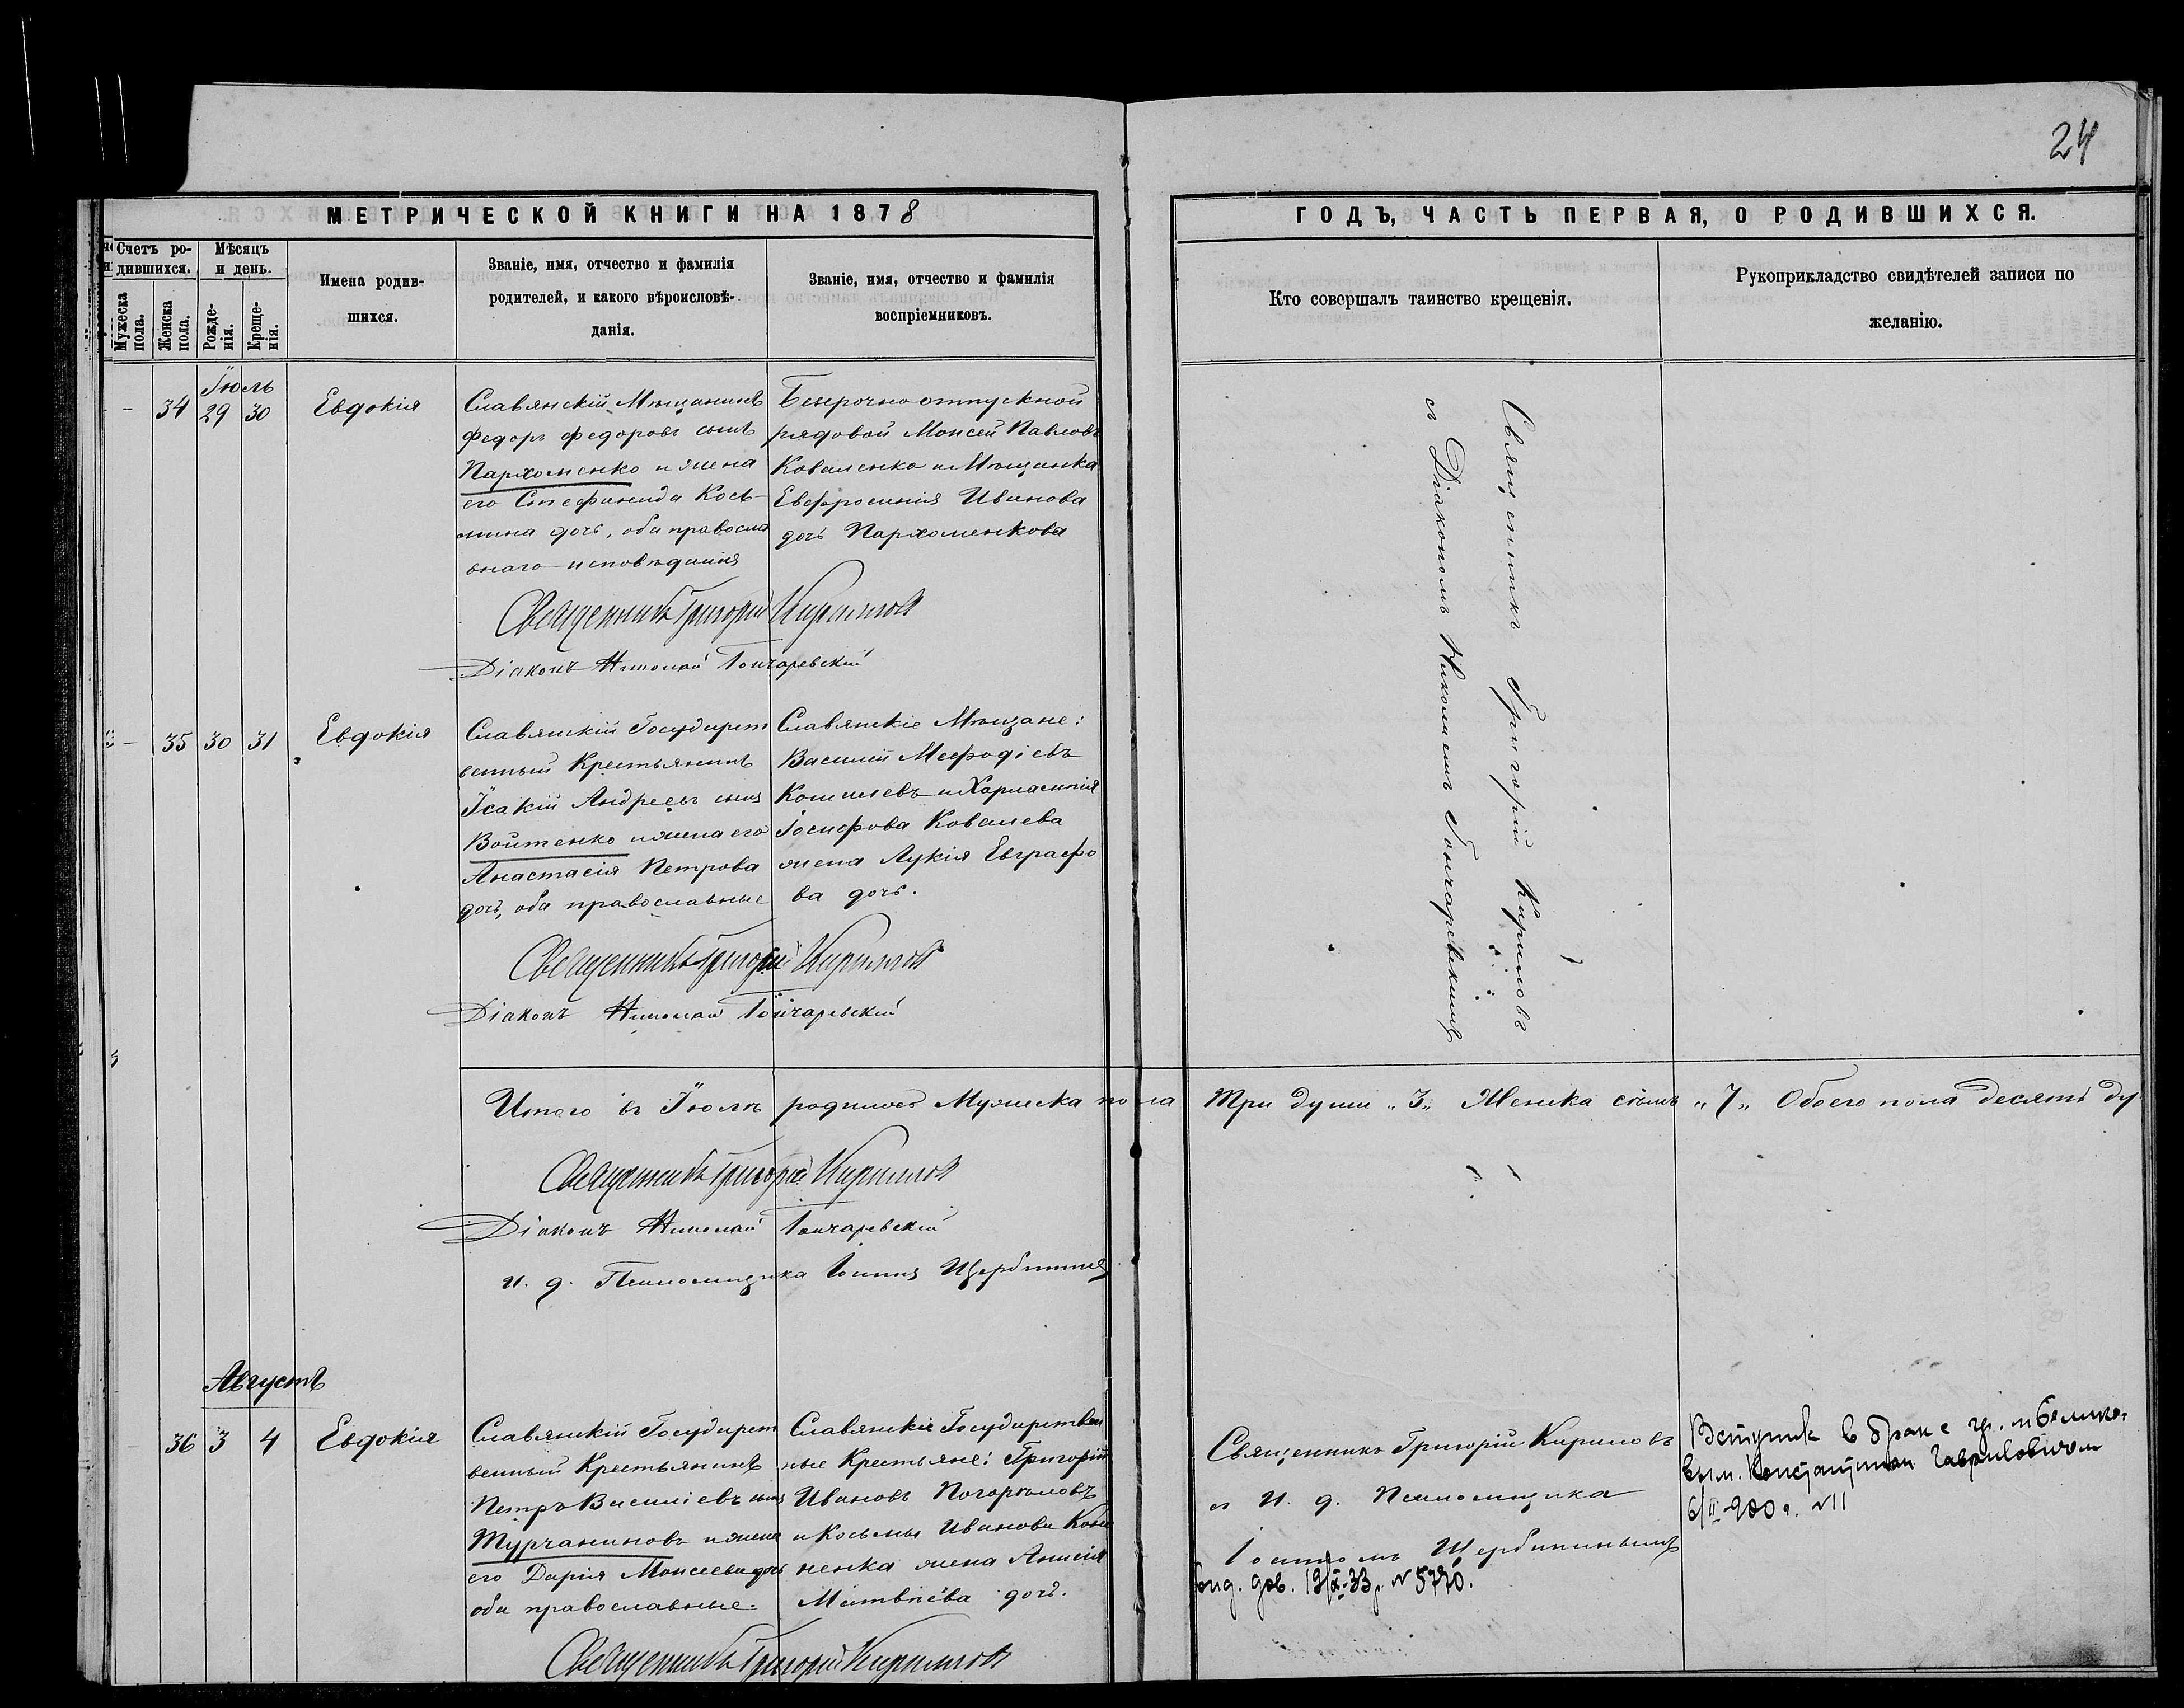 24
МЕТРИЧЕСКОЙ КНИГИ НА 1878
ГОДЪ, ЧАСТЬ ПЕРВАЯ, О РОДИВШИХСЯ.
Счетъ ро-
дившихся.
Мужеска пола.
Женска пола.
Мѣсяцъ
и день.
Рожде-
нія.
Креще-
нія.
Имена родив-
шихся.
Званіе, имя, отчество и фамилія
родителей, и какого вѣроисповѣ-
данія.
Званіе, имя, отчество и фамилія
воспріемниковъ.
Кто совершалъ таинство крещенія.
Рукоприкладство свидѣтелей записи по
желанію.
Іюль
- 34 29 30
Евдокія
Славянскій Мѣщанинъ
Федоръ Федоровъ сынъ
Пархоменко и жена
его Стефанида Кось-
мина дочь, оба правосла
внаго исповѣданія
Безсрочно отпускной
рядовой Моисей Павловъ
Коваленко и Мѣщанка
Евфросинія Иванова
дочь Пархоменкова
Священникъ Григорій Кириловъ
Діаконъ Николай Гончаревскій
Священникъ Григорій Кириловъ
съ Діакономъ Николаемъ Гончаревскимъ
- 35 30 31
Евдокія
Славянскій Государст
венный Крестьянинъ
Ісакій Андреевъ сынъ
Войтенко и жена его
Анастасія Петрова
дочь, оба православные
Славянскіе Мѣщане:
Василій Мефодіевъ
и Харлампія
Іосифова Ковалева
жена Лукія Евграфо
ва дочь.
Священникъ Григорій Кириловъ
Діаконъ Николай Гончаревскій
Итого въ Іюлѣ родилось Мужеска пола Три души „3„ Женска семь „7„ Обоего пола десять ду
Священникъ Григорій Кириловъ
Діаконъ Николай Гончаревскій
и. д. Псаломщика Іоаннъ Щербининъ
Августъ
36 3 4
Евдокія
Славянскій Государст
венный Крестьянинъ
Петръ Василіевъ сынъ
Турчаниновъ и жена
его Дарія Моисеева дочь
оба православные.
Славянскіе Государствен
ные Крестьяне: Григорій
Ивановъ Погорѣловъ
и Косьмы Иванова
ненка жена Анисія
Матвѣева дочь.
Священникъ Григорій Кириловъ
съ И. д. Псаломщика
Іоанномъ Щербининымъ
Вид. дов. 19/X-33 р. N 5770.
Вступил в брак с гр.
Константином Гавриловичем
6/II-900 г. N 11
Священникъ Григорій Кириловъ